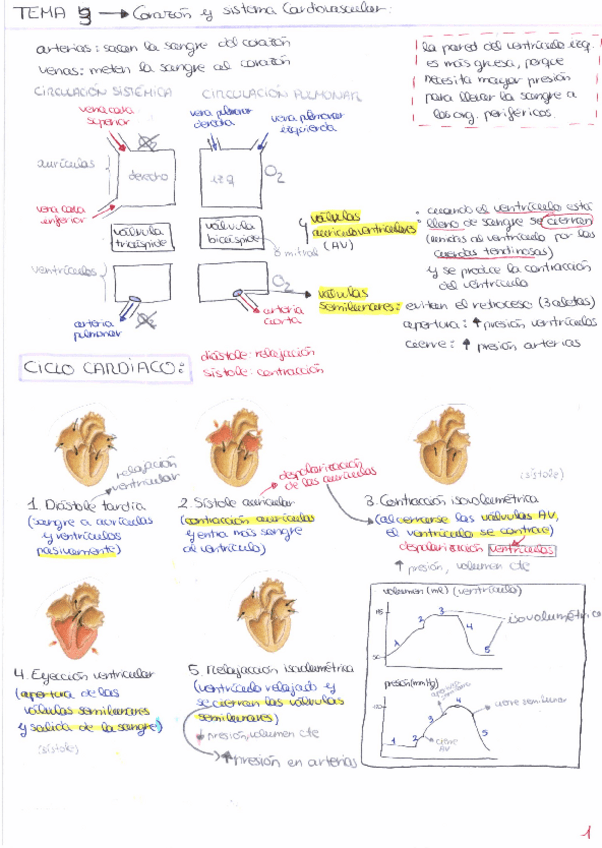 TEMA 9 → Corazón y sistema Cardiovascular:
arterias: sacan la sangre del corazón
venas: meten la sangre al corazón
la pared del ventrículo izq.
es más gruesa, porque
necesita mayor presión
para llevar la sangre a
los org. periféricos.
CIRCULACIÓN SISTÉMICA
CIRCULACIÓN PULMONAR
vena cava
superior
O2
vena pulmonar
derecha
vena pulmonar
izquierda
aurículas
derecho
izq
O2
vena cava
inferior
válvula
tricúspide
válvula
bicúspide
ó mitral
válvulas
auriculoventriculares
(AV)
: cuando el ventrículo está
lleno de sangre se cierran
(unidas al ventrículo por las
cuerdas tendinosas)
y se produce la contracción
del ventrículo
ventrículos
O2
arteria
pulmonar
O2
arteria
aorta
válvulas
semilunares: evitan el retroceso (3 aletas)
apertura: ↑ presión ventrículos
cierre: ↑ presión arterias
CICLO CARDÍACO:
diástole: relajación
sístole: contracción
relajación
ventricular
despolarización
de las aurículas
(sístole)
1. Diástole tardía
(sangre a aurículas
y ventrículos
pasivamente)
2. Sístole auricular
(contracción aurículas
y entra más sangre
al ventrículo)
3. Contracción isovolumétrica
(al cerrarse las válvulas AV,
el ventrículo se contrae)
despolarización ventrículos
↑ presión, volumen cte
4. Eyección ventricular
(apertura de las
válvulas semilunares
y salida de la sangre)
(sístole)
5. Relajación isovolumétrica
(ventrículo relajado y
se cierran las válvulas
semilunares)
↓ presión, volumen cte
↑ presión en arterias
volumen (ml) (ventrículo)
1
2
3
4
5
isovolumétrica
presión (mmHg)
120
1
2
3
4
5
apertura
semilunar
cierre
AV
cierre semilunar
1